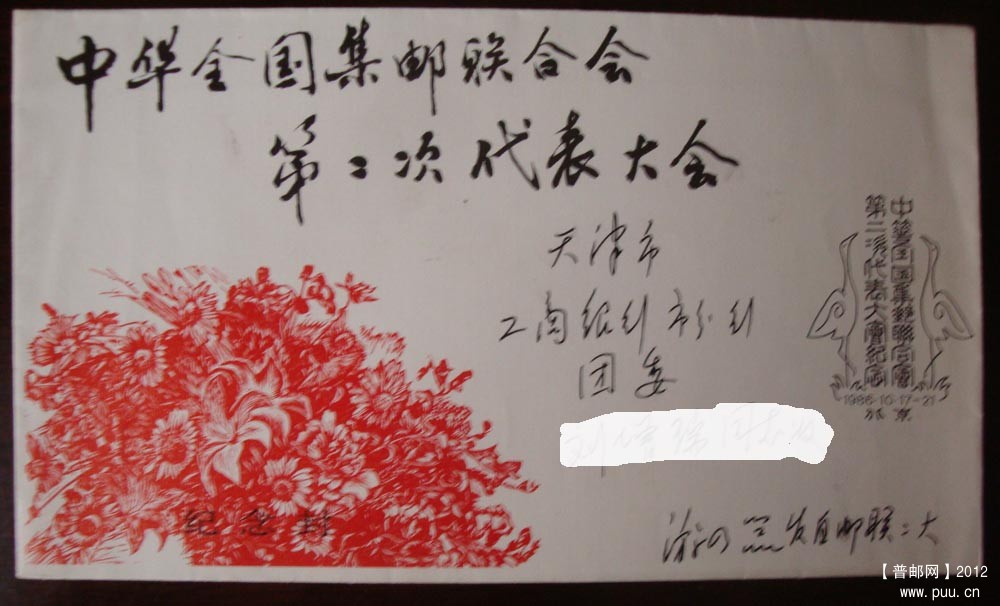 中华全国集邮联合会
第二次代表大会
天津市
工商银行市分行
团委
发自邮联二大
纪念封
中華全國集郵聯合會
第二次代表大會紀念
1986·10·17-21
北京
【普邮网】2012
www.puu.cn